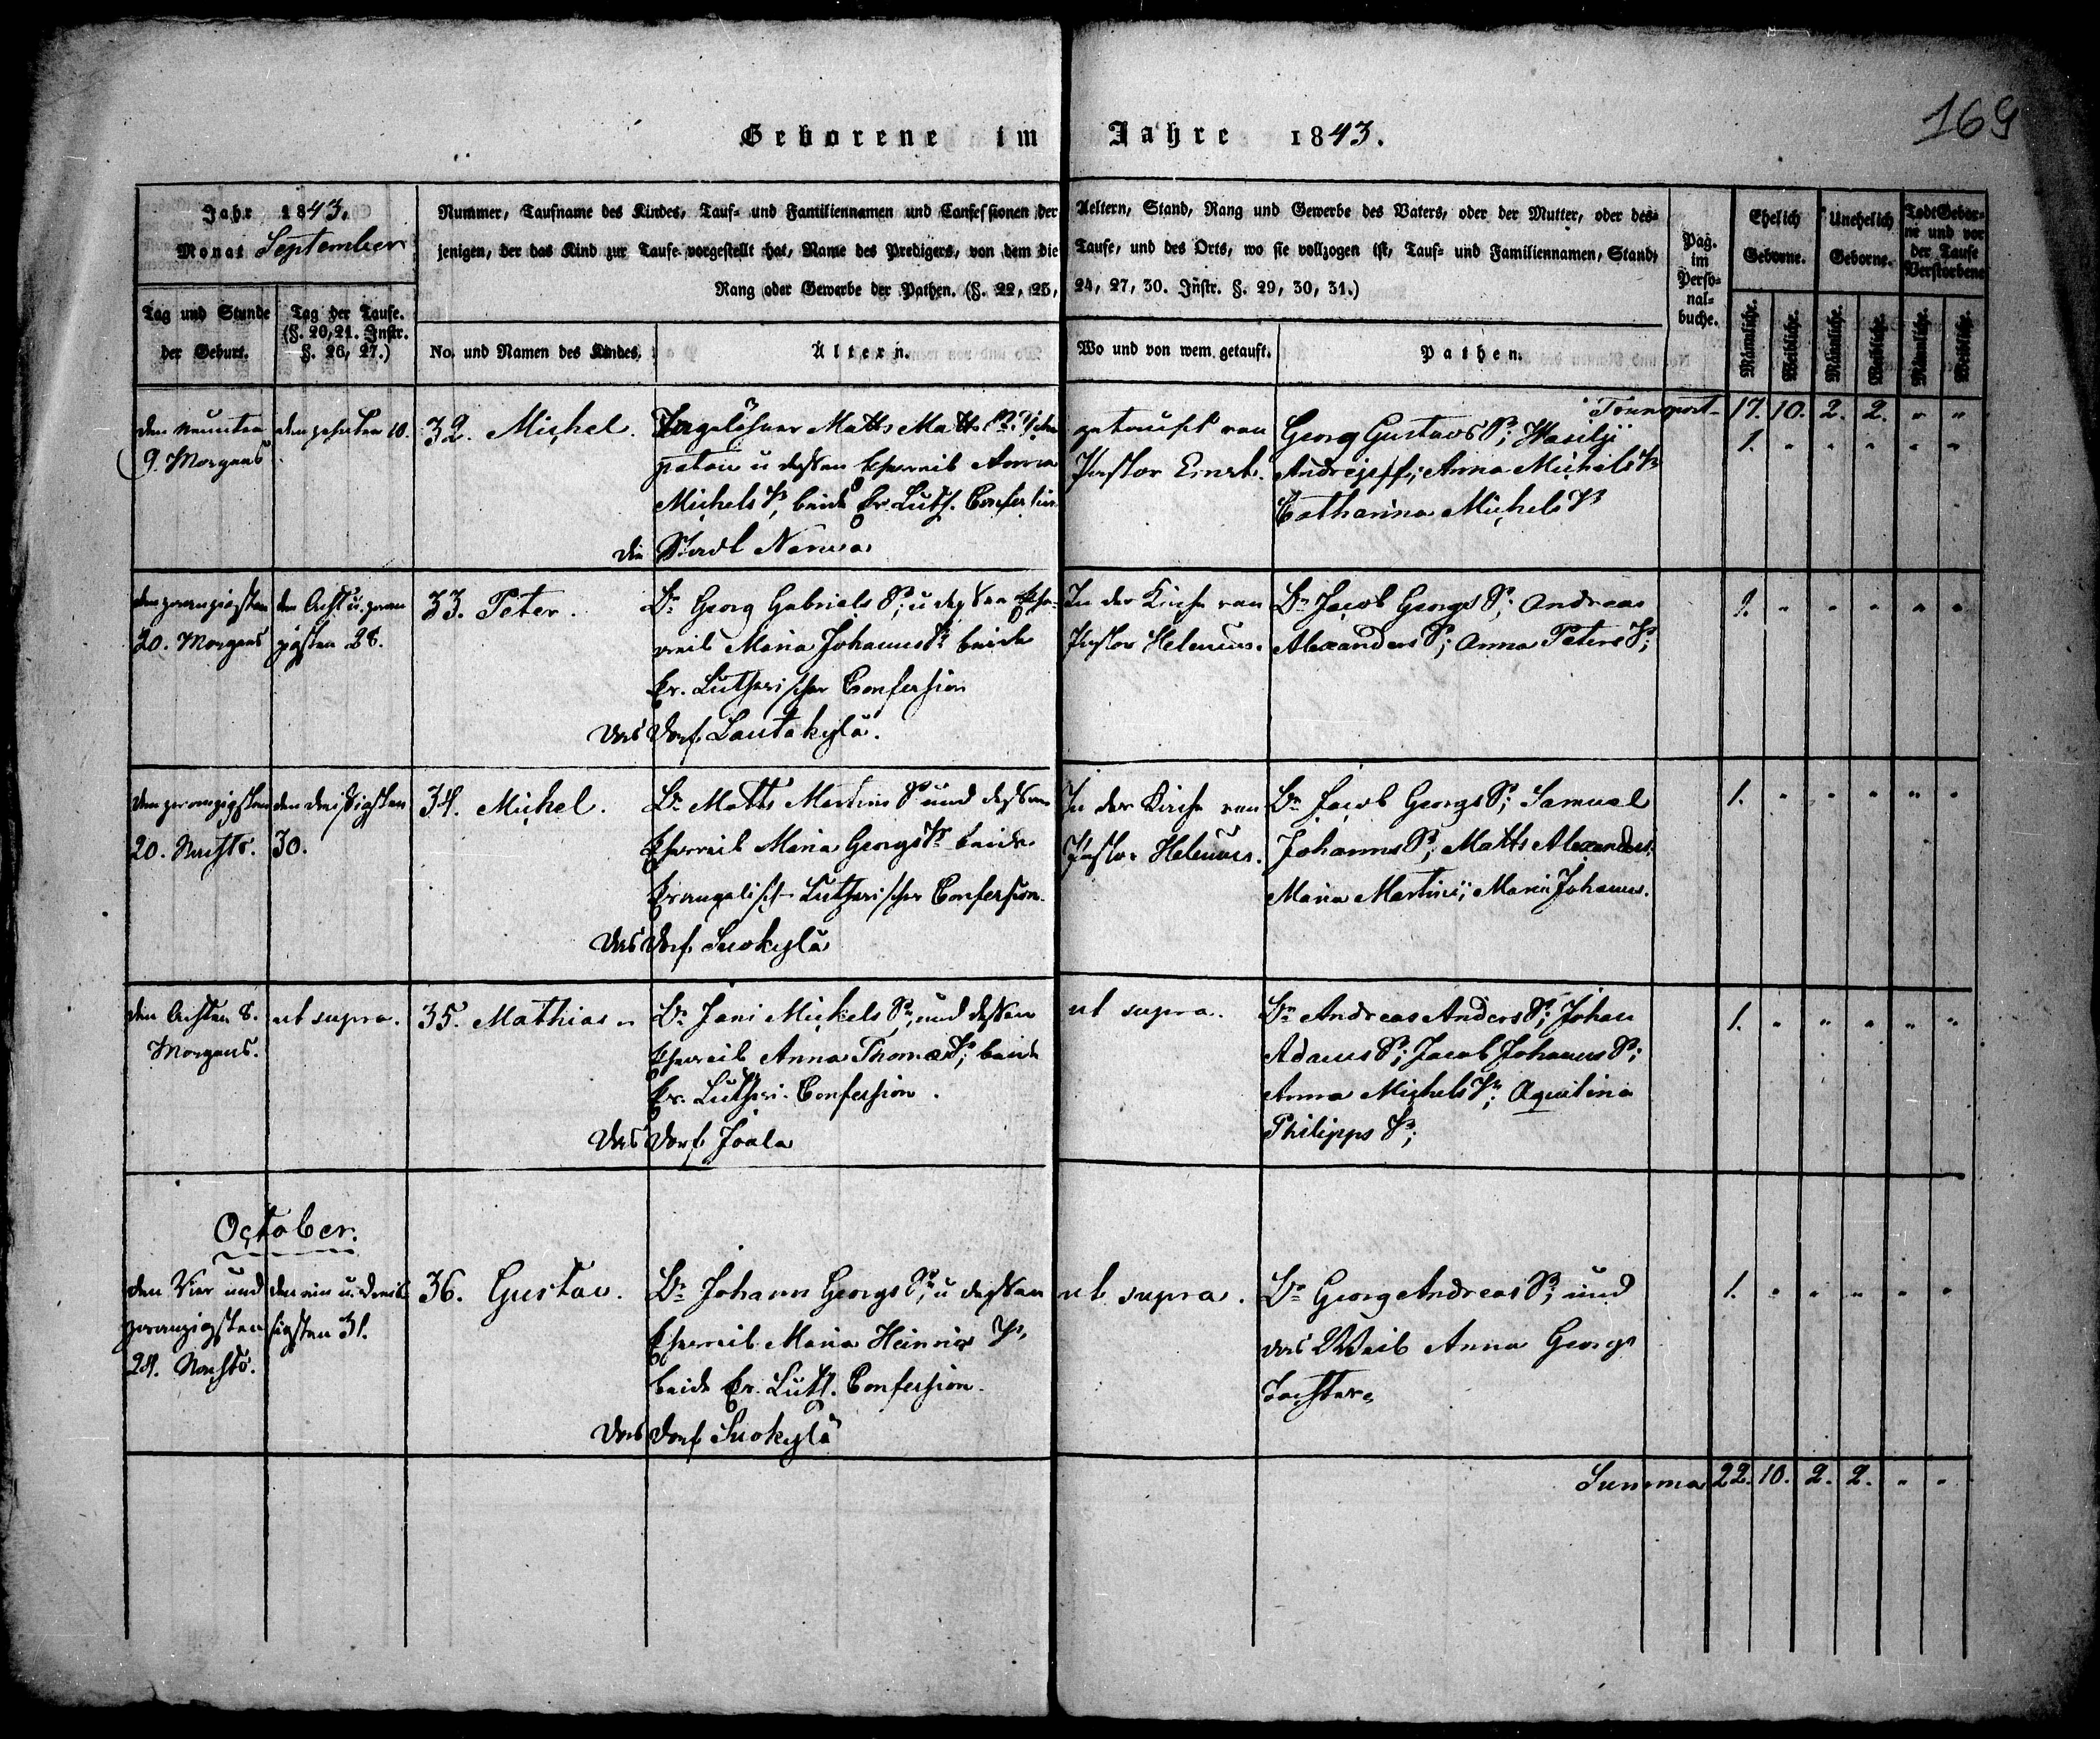 169
Geborene im Jahre 1843.
Jahr 1843.
Monat September
Nummer, Taufname des Kindes, Tauf- und Familiennamen und Confessionen der Aeltern, Stand, Rang und Gewerbe des Vaters, oder der Mutter, oder des-
jenigen, der das Kind zur Taufe vorgestellt hat, Name des Predigers, von dem die Taufe, und des Orts, wo sie vollzogen ist, Tauf- und Familiennamen, Stand,
Rang oder Gewerbe der Pathen. (§. 22, 23, 24, 27, 30. Instr. §. 29, 30, 31.)
Pag.
im
Perso-
nal-
buche.
Ehelich
Geborne.
Unehelich
Geborne.
TodtGebor-
ne und vor
der Taufe
Verstorbene
Tag und Stunde
der Geburt.
Tag der Taufe.
(§. 20, 21. Instr.
§. 26, 27.)
No. und Namen des Kindes.
Ältern.
Wo und von wem getauft.
Pathen.
Männliche. Weibliche. Männliche. Weibliche. Männliche. Weibliche.
Transport 17. 10. 2. 2. " "
den Neunten
9. Morgens
den zehnten 10.
32. Michel.
Tagelöhner Matts Matts S.
u dessen Eheweib Anna
Michels T. beide Ev. Luth. Confession
die Stadt Narwa
getauft von
Pastor Ernst.
Georg Gustavs S; Wasilji
Andrejeff; Anna Michels T
Catharina Michels T
1. " " " " "
den zwanzigsten
20. Morgens
den Acht u. zwan
zigsten 28.
33. Peter.
Br Georg Gabriels S; u dessen Ehe-
weib Maria Johanns T beide
Ev. Lutherischer Confession
das Dorf Lautakylä.
In der Kirche von
Pastor Helenius.
Br Jacob Georgs S; Andreas
Alexanders S; Anna Peters T;
1. " " " " "
den zwanzigsten
20. Nachts.
den dreißigsten
30.
34. Michel.
Br Matts Martins S und dessen
Eheweib Maria Georgs T beide
Evangelisch-Lutherischer Confession.
das Dorf Suokylä
In der Kirche von
Pastor Helenius.
Br Jacob Georgs S; Samuel
Johanns S; Matts Alexanders
Maria Martins; Maria Johanns.
1. " " " " "
den Achten 8.
Morgens.
ut supra.
35. Mathias
Br Jani Michels S, und dessen
Eheweib Anna Thomas T; beide
Ev. Lutheri. Confession.
das Dorf Joala
ut supra.
Br Andreas Anders S; Johan
Adams S; Jacob Johanns S;
Anna Michels T; Aquilina
Philipps T;
1. " " " " "
October.
den Vier und
zwanzigsten
24. Nachts.
den ein u. dreis
sigsten 31.
36. Gustav.
Br Johann Georgs S; u dessen
Eheweib Maria Heinrichs T,
beide Ev. Luth. Confession.
das Dorf Suokylä
ut supra.
Br Georg Andreas S; und
das Weib Anna Georgs
Tochter
1. " " " " "
Summa 22. 10. 2. 2. " "